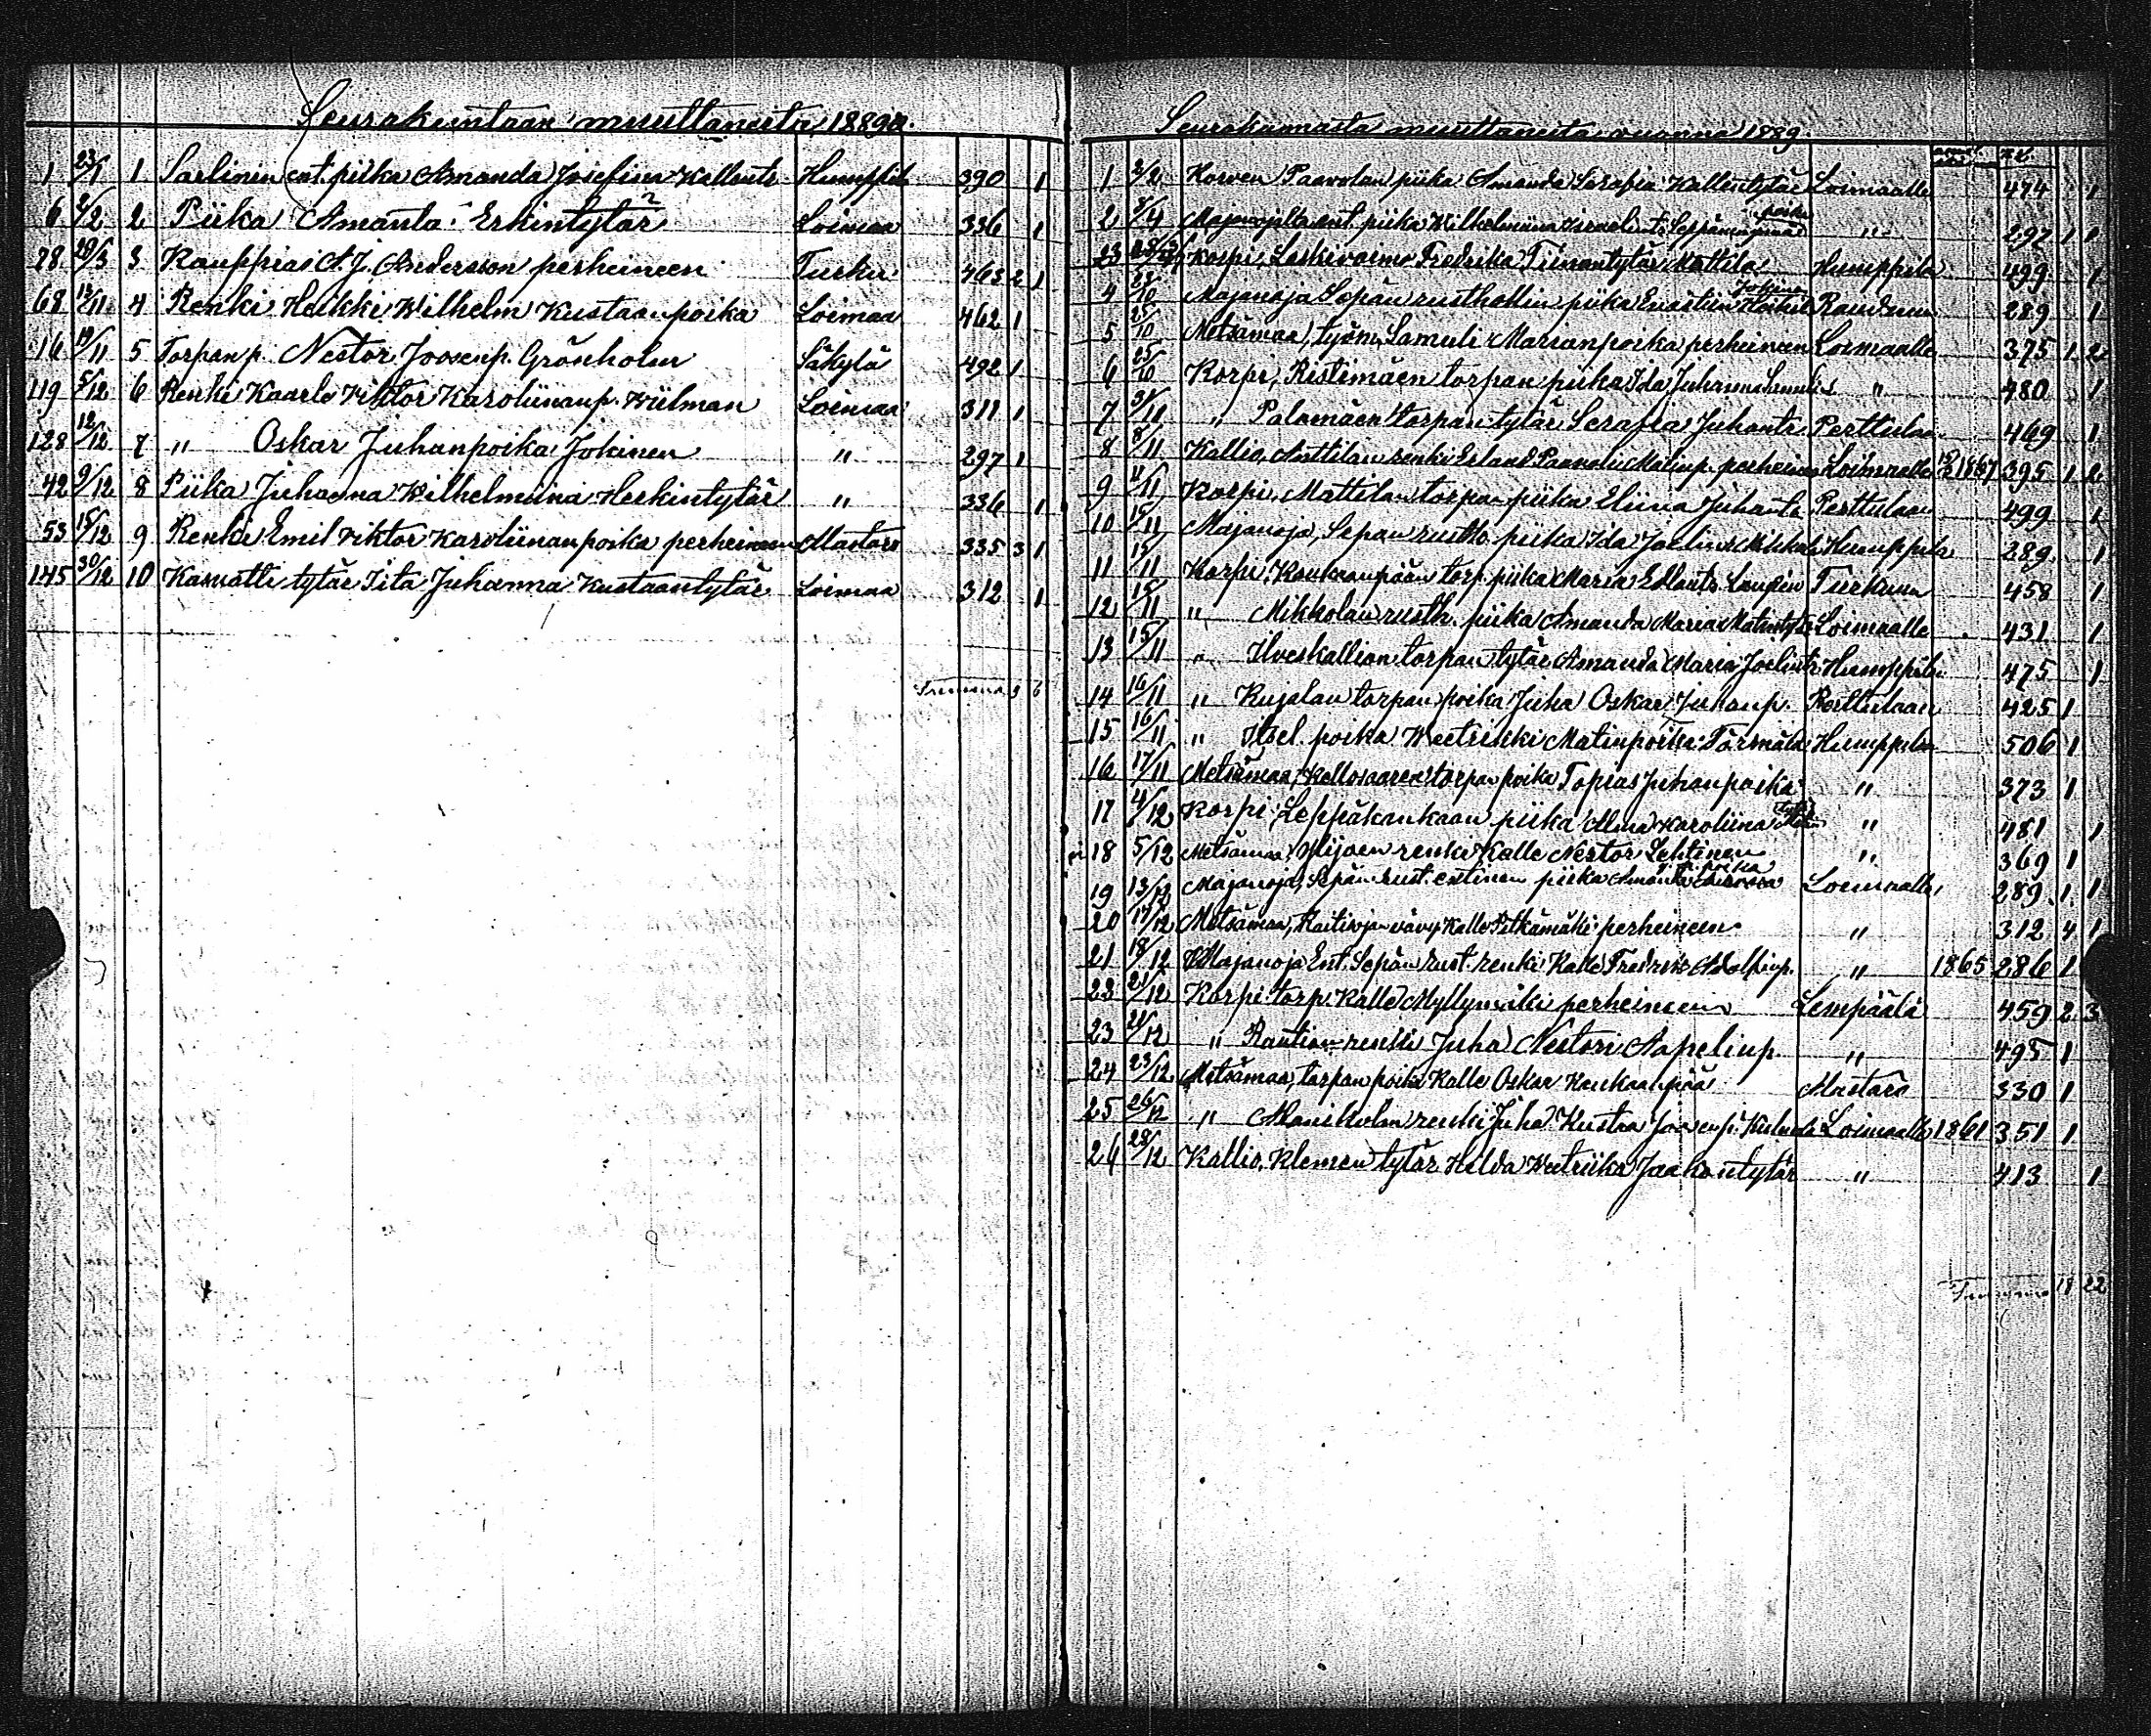 Seurakuntaan muuttaneita 1889.
1 23/1 1 Sarlinin ent. piika Amanda Josefina Kallentr. Humppila 390 1
6 2/2 2 Piika Amanta Erkintytär Loimaa 336 1
28 20/3 3 Kauppias A. J. Andersson perheineen Turku 463 2 1
68 12/11 4 Renki Heikki Wilhelm Kustaanpoika Loimaa 462 1
16 19/11 5 Torpan p. Nestor Joosenp. Grönholm Säkylä 492 1
119 5/12 6 Renki Kaarlo Viktor Karoliinanp. Wiilman Loimaa 311 1
128 12/12 7 " Oskar Juhanpoika Jokinen " 297 1
42 9/12 8 Piika Juhanna Wilhelmiina Herkintytär " 336 1
53 15/12 9 Renki Emil Viktor Karoliinanpoika perheineen Mastaro 335 3 1
145 30/12 10 Kasvatti tytär Iita Juhanna Kustaantytär Loimaa 312 1
Summa 9 6
Seurakunnasta muuttaneita vuonna 1889.
1 2/2 Korven Paavolan piika Amanda Serafia Kallentytär Loimaalle 474 1
poika
2 3/4 Majanojalta ent. piika Wilhelmiina Israelint. " 292 1 1
23 Korpi, Leskivaimo Fredrika Tiinantytär Mattila Humppila 499 1
Jokinen
4 25/10 Majanoja Sepän rusthollin piika 289 1
5 25/10 Metsämaa, työm. Samuli Marianpoika perheineen Loimaalle 375 1 2
6 25/10 Korpi, Ristimäen torpan piika Ida Juhanna " 480 1
7 31/10 " Palomäen torpan tytär Serafia Juhantr. Perttulaan 469 1
8 8/11 Kallio, Anttilan renki Erland Paavoli Matinp. perheineen Loimaalle 1867 395 1 2
9 11/11 Korpi, Mattilan torpan piika Eliina Juhantr Perttulaan 499 1
10 15/11 Majanoja, Sepän rusth. piika Ida Joelintr Humppila 289 1
11 15/11 Korpi, Kaukaanpään torp. piika Maria Turkuun 458 1
12 15/11 " Mikkolan rusth. piika Amanda Maria Matintytär Loimaalle 431 1
13 15/11 " Ilveskallion torpan tytär Amanda Maria Joelintr Humppila 475 1
14 16/11 " Kujalan torpan poika Juha Oskar Juhanp. Perttulaan 425 1
15 16/11 " Itsel. poika Weetrikki Matinpoika Törmälä Humppilan 506 1
16 17/11 Metsämaa, Kallosaaren torpan poika Topias Juhanpoika " 373 1
17 4/12 Korpi, Leppäkankaan piika Alma Karoliina " 481 1
18 5/12 Metsämaa, Ylijoen renki Kalle Nestor Lehtinen " 369 1
ja poika
19 13/12 Majanoja, Sepän rust. entinen piika Loimaalle 289 1 1
20 17/12 Metsämaa, Raitinojan vävy Kalle Pitkämäki perheineen " 312 4 1
21 18/12 Majanoja Ent. Sepän rust. renki Kalle Fredrik Adolfinp. " 1865 286 1
23 21/12 Korpi torp. Kalle Myllymäki perheineen Lempäälä 459 2 3
23 21/12 " Rautian renki Juha Nestori Aapelinp. " 495 1
24 23/12 Metsämaa, torpan poika Kalle Oskar Kaukaanpää Mastaro 330 1
25 26/12 " renki Juha Kustaa Loimaalle 1861 351 1
26 28/12 Kallio, Klemen tytär Hilda Wetriika Jaakontytär " 413 1
Summa 18 22